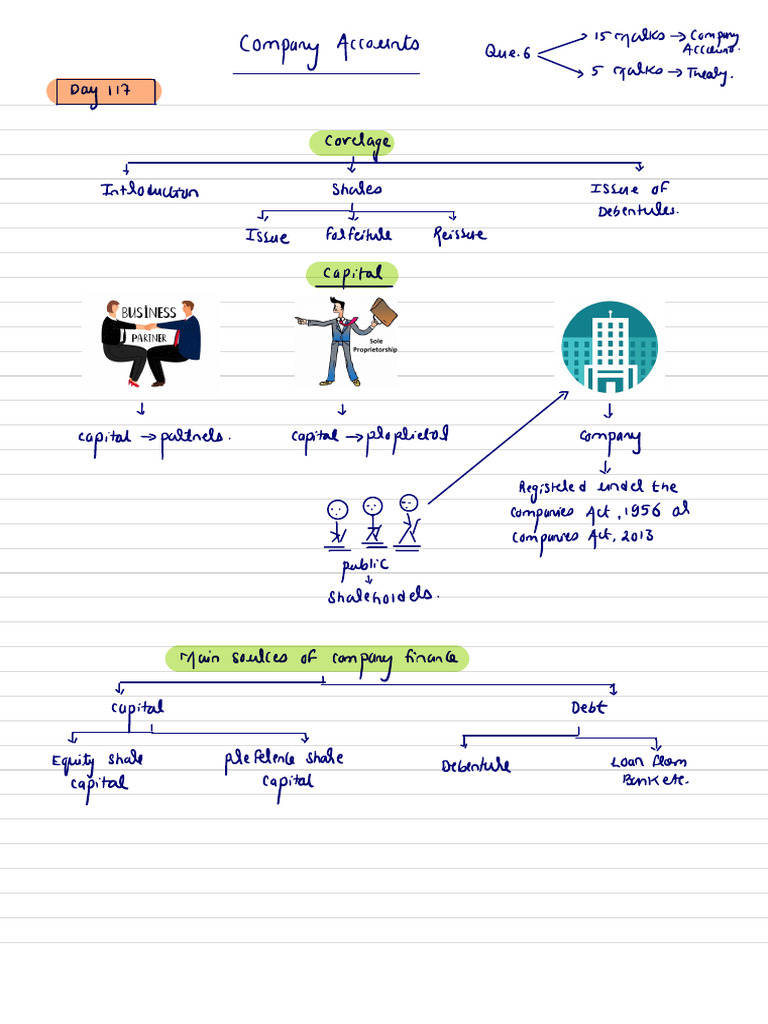 Company Accounts
Que. 6
15 Marks → Company Account.
5 Marks → Theory.
Day 117
Coverage
Introduction
Shares
Issue of Debentures.
Issue
Forfeiture
Reissue
Capital
BUSINESS
PARTNER
Sole
Proprietorship
capital → partners.
capital → proprietor
company
Registered under the
companies Act, 1956 or
companies Act, 2013
public
shareholders.
Main sources of company finance
capital
Debt
Equity share
capital
preference share
capital
Debenture
Loan from
Bank etc.